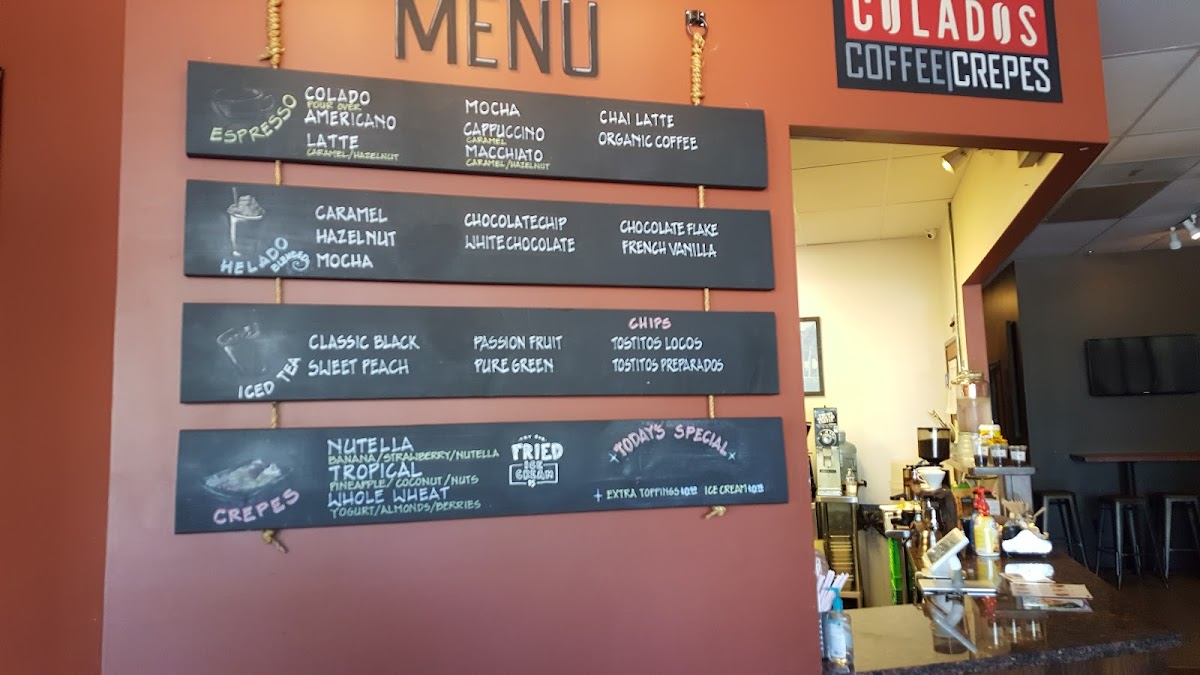 MENU
COLADOS
COFFEE|CREPES
ESPRESSO
COLADO
POUR OVER
AMERICANO
LATTE
CARAMEL/HAZELNUT
MOCHA
CAPPUCCINO
CARAMEL
MACCHIATO
CARAMEL/HAZELNUT
CHAI LATTE
ORGANIC COFFEE
HELADO
BLENDED
CARAMEL
HAZELNUT
MOCHA
CHOCOLATE CHIP
WHITE CHOCOLATE
CHOCOLATE FLAKE
FRENCH VANILLA
ICED TEA
CLASSIC BLACK
SWEET PEACH
PASSION FRUIT
PURE GREEN
CHIPS
TOSTITOS LOCOS
TOSTITOS PREPARADOS
CREPES
NUTELLA
BANANA/STRAWBERRY/NUTELLA
TROPICAL
PINEAPPLE/COCONUT/NUTS
WHOLE WHEAT
YOGURT/ALMONDS/BERRIES
TRY OUR
FRIED
ICE
CREAM
TODAY'S SPECIAL
+ EXTRA TOPPINGS ICE CREAM